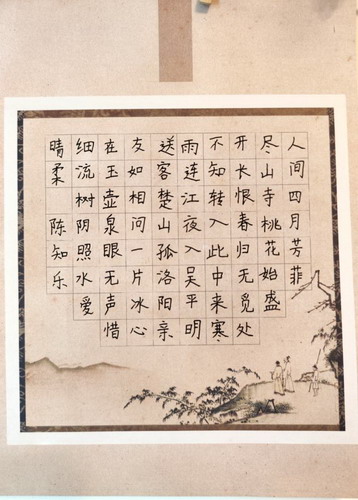 人间四月芳菲
尽山寺桃花始盛
开长恨春归无觅处
不知转入此中来寒
雨连江夜入吴平明
送客楚山孤洛阳亲
友如相问一片冰心
在玉壶泉眼无声惜
细流树阴照水爱
晴柔 陈知乐